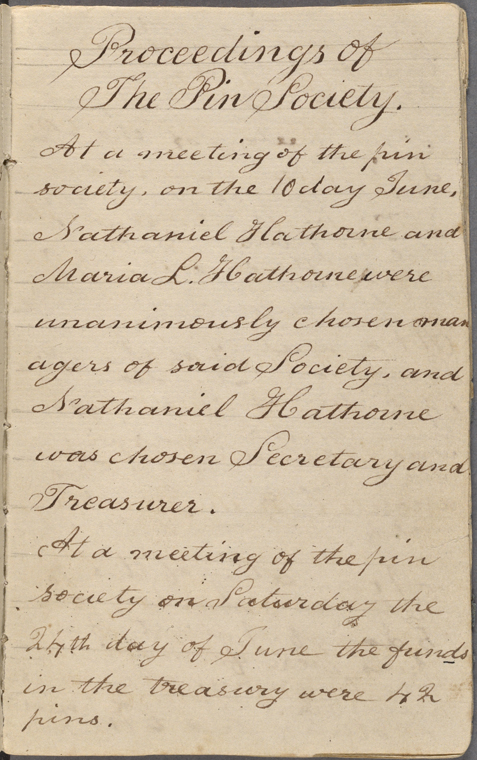 Proceedings of
The Pin Society.
At a meeting of the pin
society, on the 10 day June,
Nathaniel Hathorne and
Maria L. Hathorne were
unanimously chosen man
agers of said Society, and
Nathaniel Hathorne
was chosen Secretary and
Treasurer.
At a meeting of the pin
society on Saturday the
24th day of June the funds
in the treasury were 42
pins.